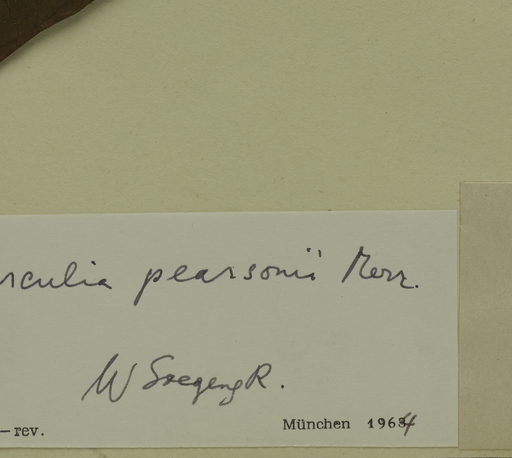 rculia pearsonii Merr.
W Soegeng R.
— rev. München 1964